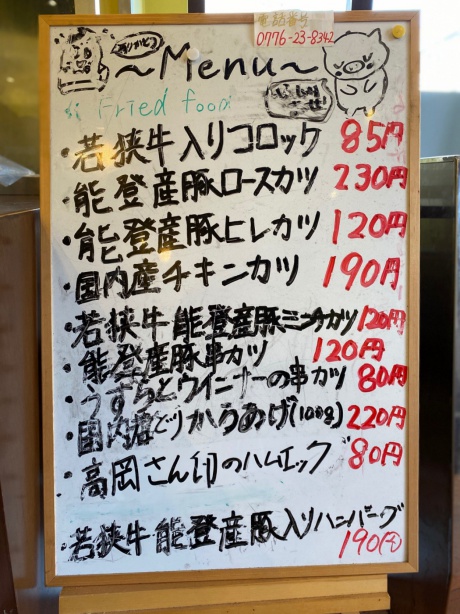 電話番号
0776-23-8342
ありがとう
~Menu~
Fried food
・若狭牛入りコロッケ 85円
・能登産豚ロースカツ 230円
・能登産豚ヒレカツ 120円
・国内産チキンカツ 190円
・若狭牛能登産豚ミンチカツ 120円
・能登産豚串カツ 120円
・うずらとウインナーの串カツ 80円
・国内産とりからあげ(100g) 220円
・高岡さん印のハムエッグ 80円
・若狭牛能登産豚入りハンバーグ
190円